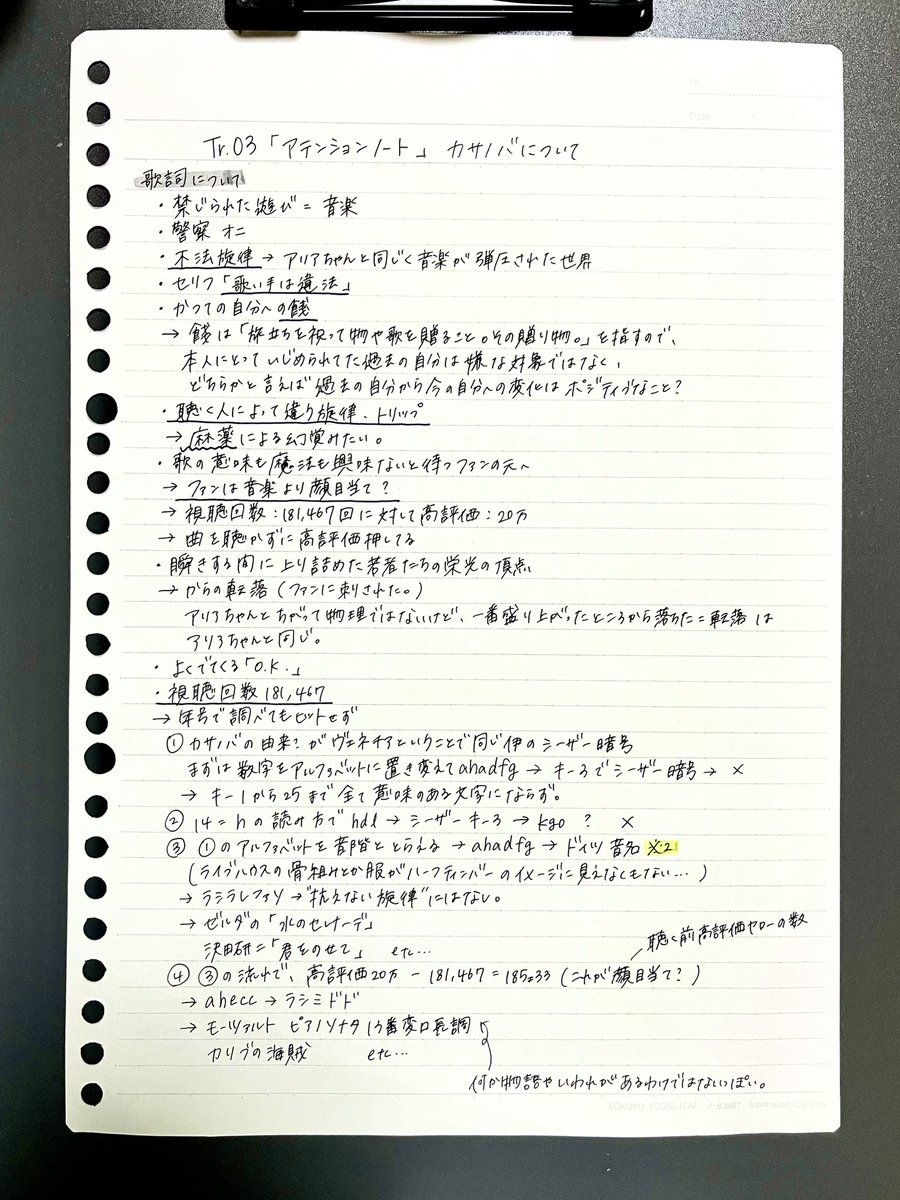 No.
Date
Tr.03「アテンションノート」 カサノバについて
歌詞について
・禁じられた遊び = 音楽
・警察 オニ
・不法旋律 → アリアちゃんと同じく音楽が弾圧された世界
・セリフ「歌い手は違法」
・かつての自分への餞
→ 餞は「旅立ちを祝って物や歌を贈ること。その贈り物。」を指すので、
本人にとっていじめられてた過去の自分は嫌な対象ではなく、
どちらかと言えば過去の自分から今の自分への変化はポジティブなこと?
・聴く人によって違う旋律、トリップ
→ 麻薬による幻覚みたい。
・歌の意味も魔法も興味ないと待つファンの元へ
→ ファンは音楽より顔目当て?
→ 視聴回数:181,467回に対して高評価:20万
→ 曲を聴かずに高評価押してる
・瞬きする間に上り詰めた若者たちの栄光の頂点
→ からの転落(ファンに刺された。)
アリアちゃんとちがって物理ではないけど、一番盛り上がったところから落ちた=転落は
アリアちゃんと同じ。
・よくでてくる「O.K.」
・視聴回数 181,467
→ 年号で調べてもヒットせず
① カサノバの由来?がヴェネチアということで同じ伊のシーザー暗号
まずは数字をアルファベットに置き変えて ahadfg → キー3でシーザー暗号 → ×
→ キー1から25まで全て意味のある文字にならず。
② 14=n の読み方で hdl → シーザーキー3 → kgo ? ×
③ ①のアルファベットを音階ととらえる → ahadfg → ドイツ音名 ※2
(ライブハウスの骨組みとか服がハーフティンバーのイメージに見えなくもない…)
→ ラシラレファソ → "抗えない旋律"にはない。
→ ゼルダの「水のセレナーデ」
沢田研二「君をのせて」 etc…
聴く前高評価ヤローの数
④ ③の流れで、高評価20万 - 181,467 = 18533 (これが顔目当て?)
→ ahecc → ラシミドド
→ モーツァルト ピアノソナタ13番変ロ長調
カリブの海賊 etc…
何か物語やいわれがあるわけではないっぽい。